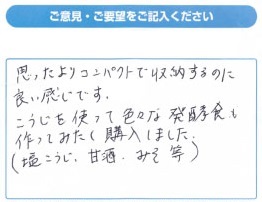 ご意見・ご要望をご記入ください
思ったよりコンパクトで収納するのに
良い感じです.
こうじを使って色々な発酵食も
作ってみたく購入しました.
(塩こうじ、甘酒、みそ 等)